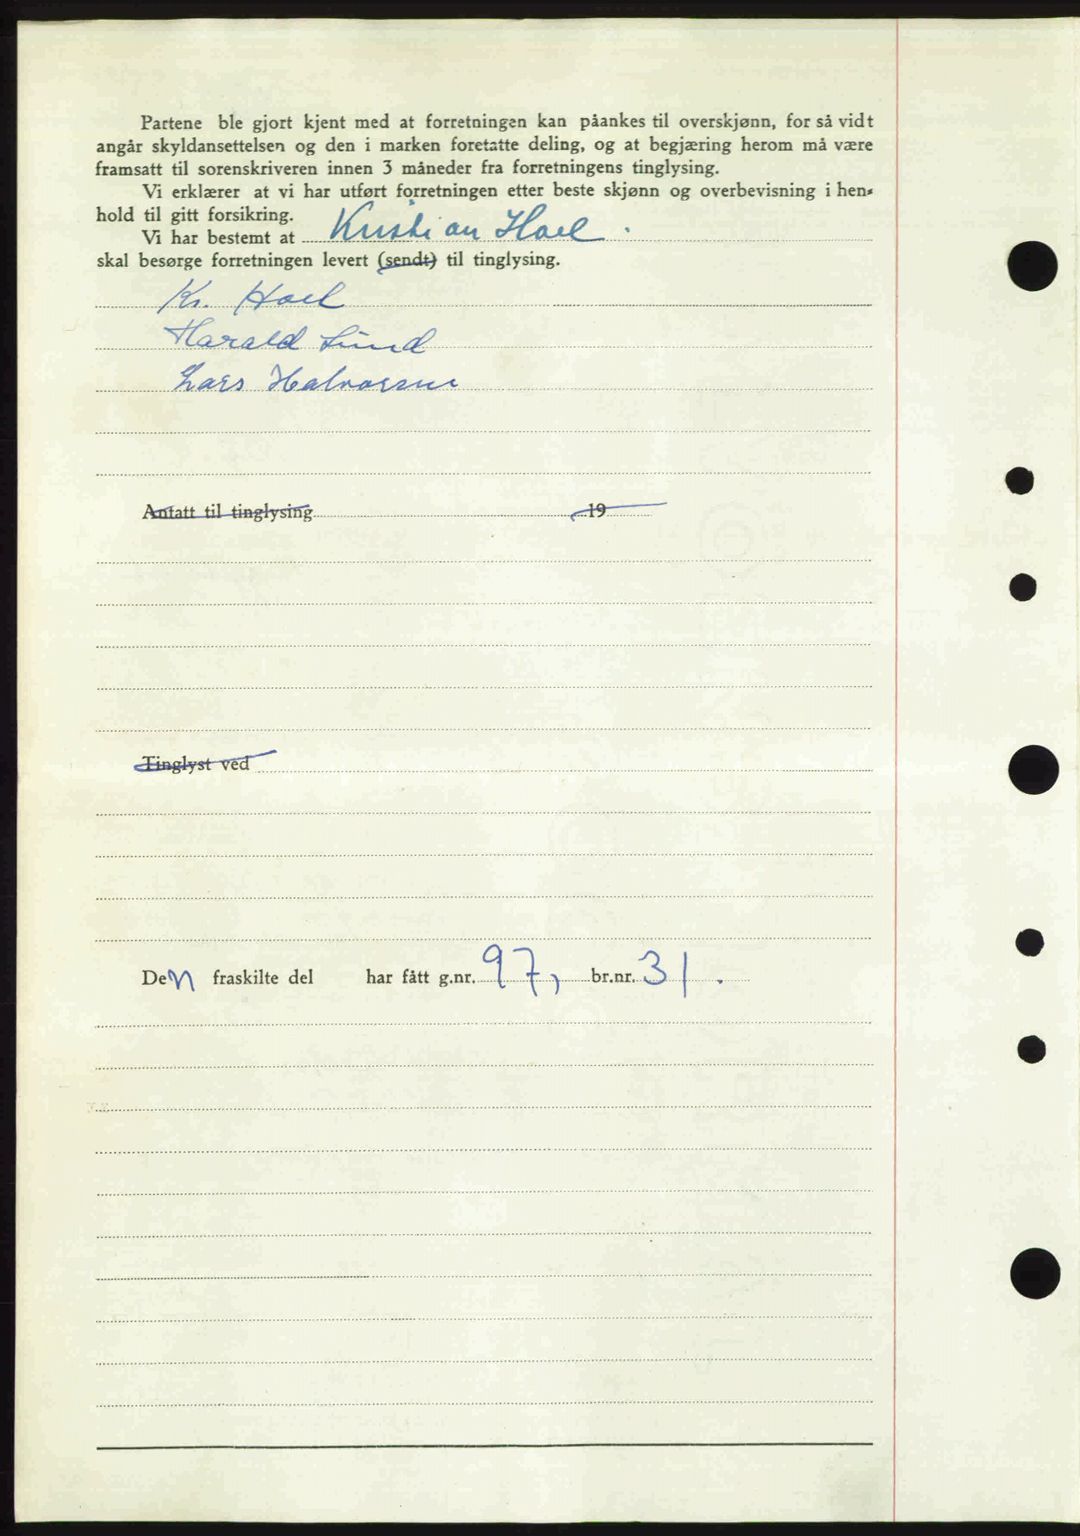 Partene ble gjort kjent med at forretningen kan påankes til overskjønn, for så vidt
angår skyldansettelsen og den i marken foretatte deling, og at begjæring herom må være
framsatt til sorenskriveren innen 3 måneder fra forretningens tinglysing.
Vi erklærer at vi har utført forretningen etter beste skjønn og overbevisning i hen-
hold til gitt forsikring.
Vi har bestemt at Kristian Hoel.
skal besørge forretningen levert (sendt) til tinglysing.
Kr. Hoel
Harald Lund
Lars Halvorsen
Antatt til tinglysing 19
Tinglyst ved
Den fraskilte del har fått g.nr. 97, br.nr. 31.